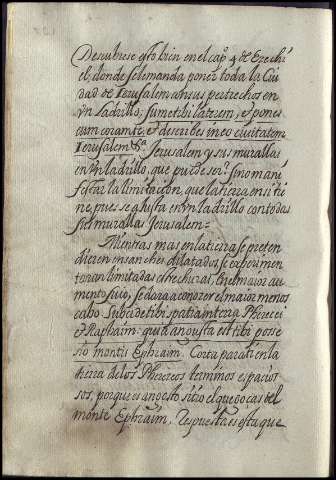 Descubrese esto bien en el cap. 4 de Ezechi
el, donde se le manda poner toda la Ciu
dad de Ierusalem con sus pertrechos en
vn Ladrillo: sume tibi laterem, et pones
eum coram te, et describes in eo ciuitatem
Ierusalem &a. Jerusalem y sus murallas
en vn ladrillo, que puede ser? Sino mani
festar la limitacion, que la tierra en si tie
ne, pues se ajusta en vn ladrillo con todas
sus murallas Jerusalem =
Mientras mas en la tierra se preten
dieren ensanches dilatados, se experimen
taran limitadas estrechuras. En el maior au
mento suio, se dara a conozer el maior menos
cabo. Succide tibi spatia in terra Pherecei
et Raphaim: quia angusta est tibi posse
sio montis Ephraim. Corta para ti en la
tierra de los Phereceos terminos espacio
sos, porque es angosto sitio el que gozas del
monte Ephraim. Respuesta es esta que